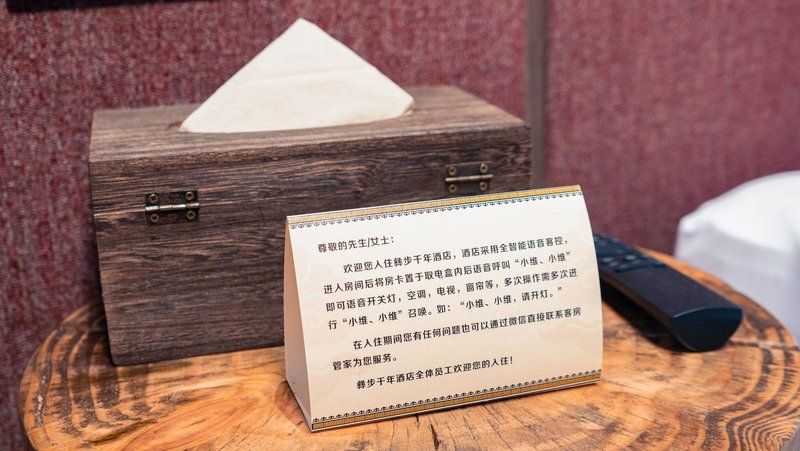 尊敬的先生/女士：
欢迎您入住彝步千年酒店，酒店采用全智能语音客控，
进入房间后将房卡置于取电盒内后语音呼叫“小维、小维”
即可语音开关灯，空调，电视，窗帘等，多次操作需多次进
行“小维、小维”召唤。如：“小维、小维，请开灯。”
在入住期间您有任何问题也可以通过微信直接联系客房
管家为您服务。
彝步千年酒店全体员工欢迎您的入住！